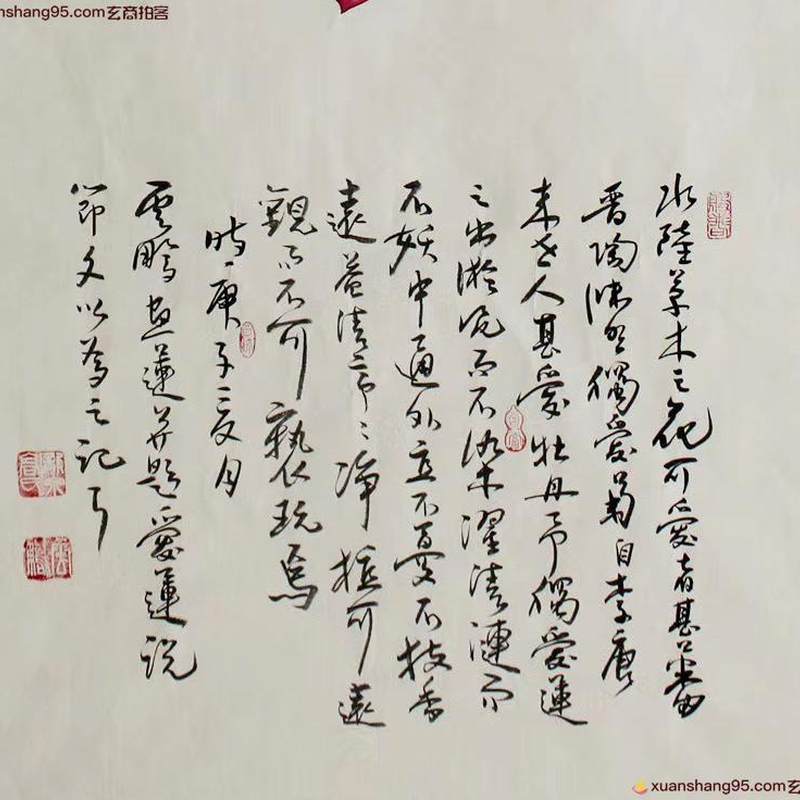 nshang95.com玄商拍客
水陸草木之花可愛者甚蕃
晋陶淵明獨愛菊自李唐
来世人甚愛牡丹予獨愛蓮
之出淤泥而不染濯清漣而
不妖中通外直不蔓不枝香
遠益清亭〻净植可遠
觀而不可褻玩焉
時庚子夏月
雲鵬蓮并題愛蓮説
節文以為之記耳
xuanshang95.com玄